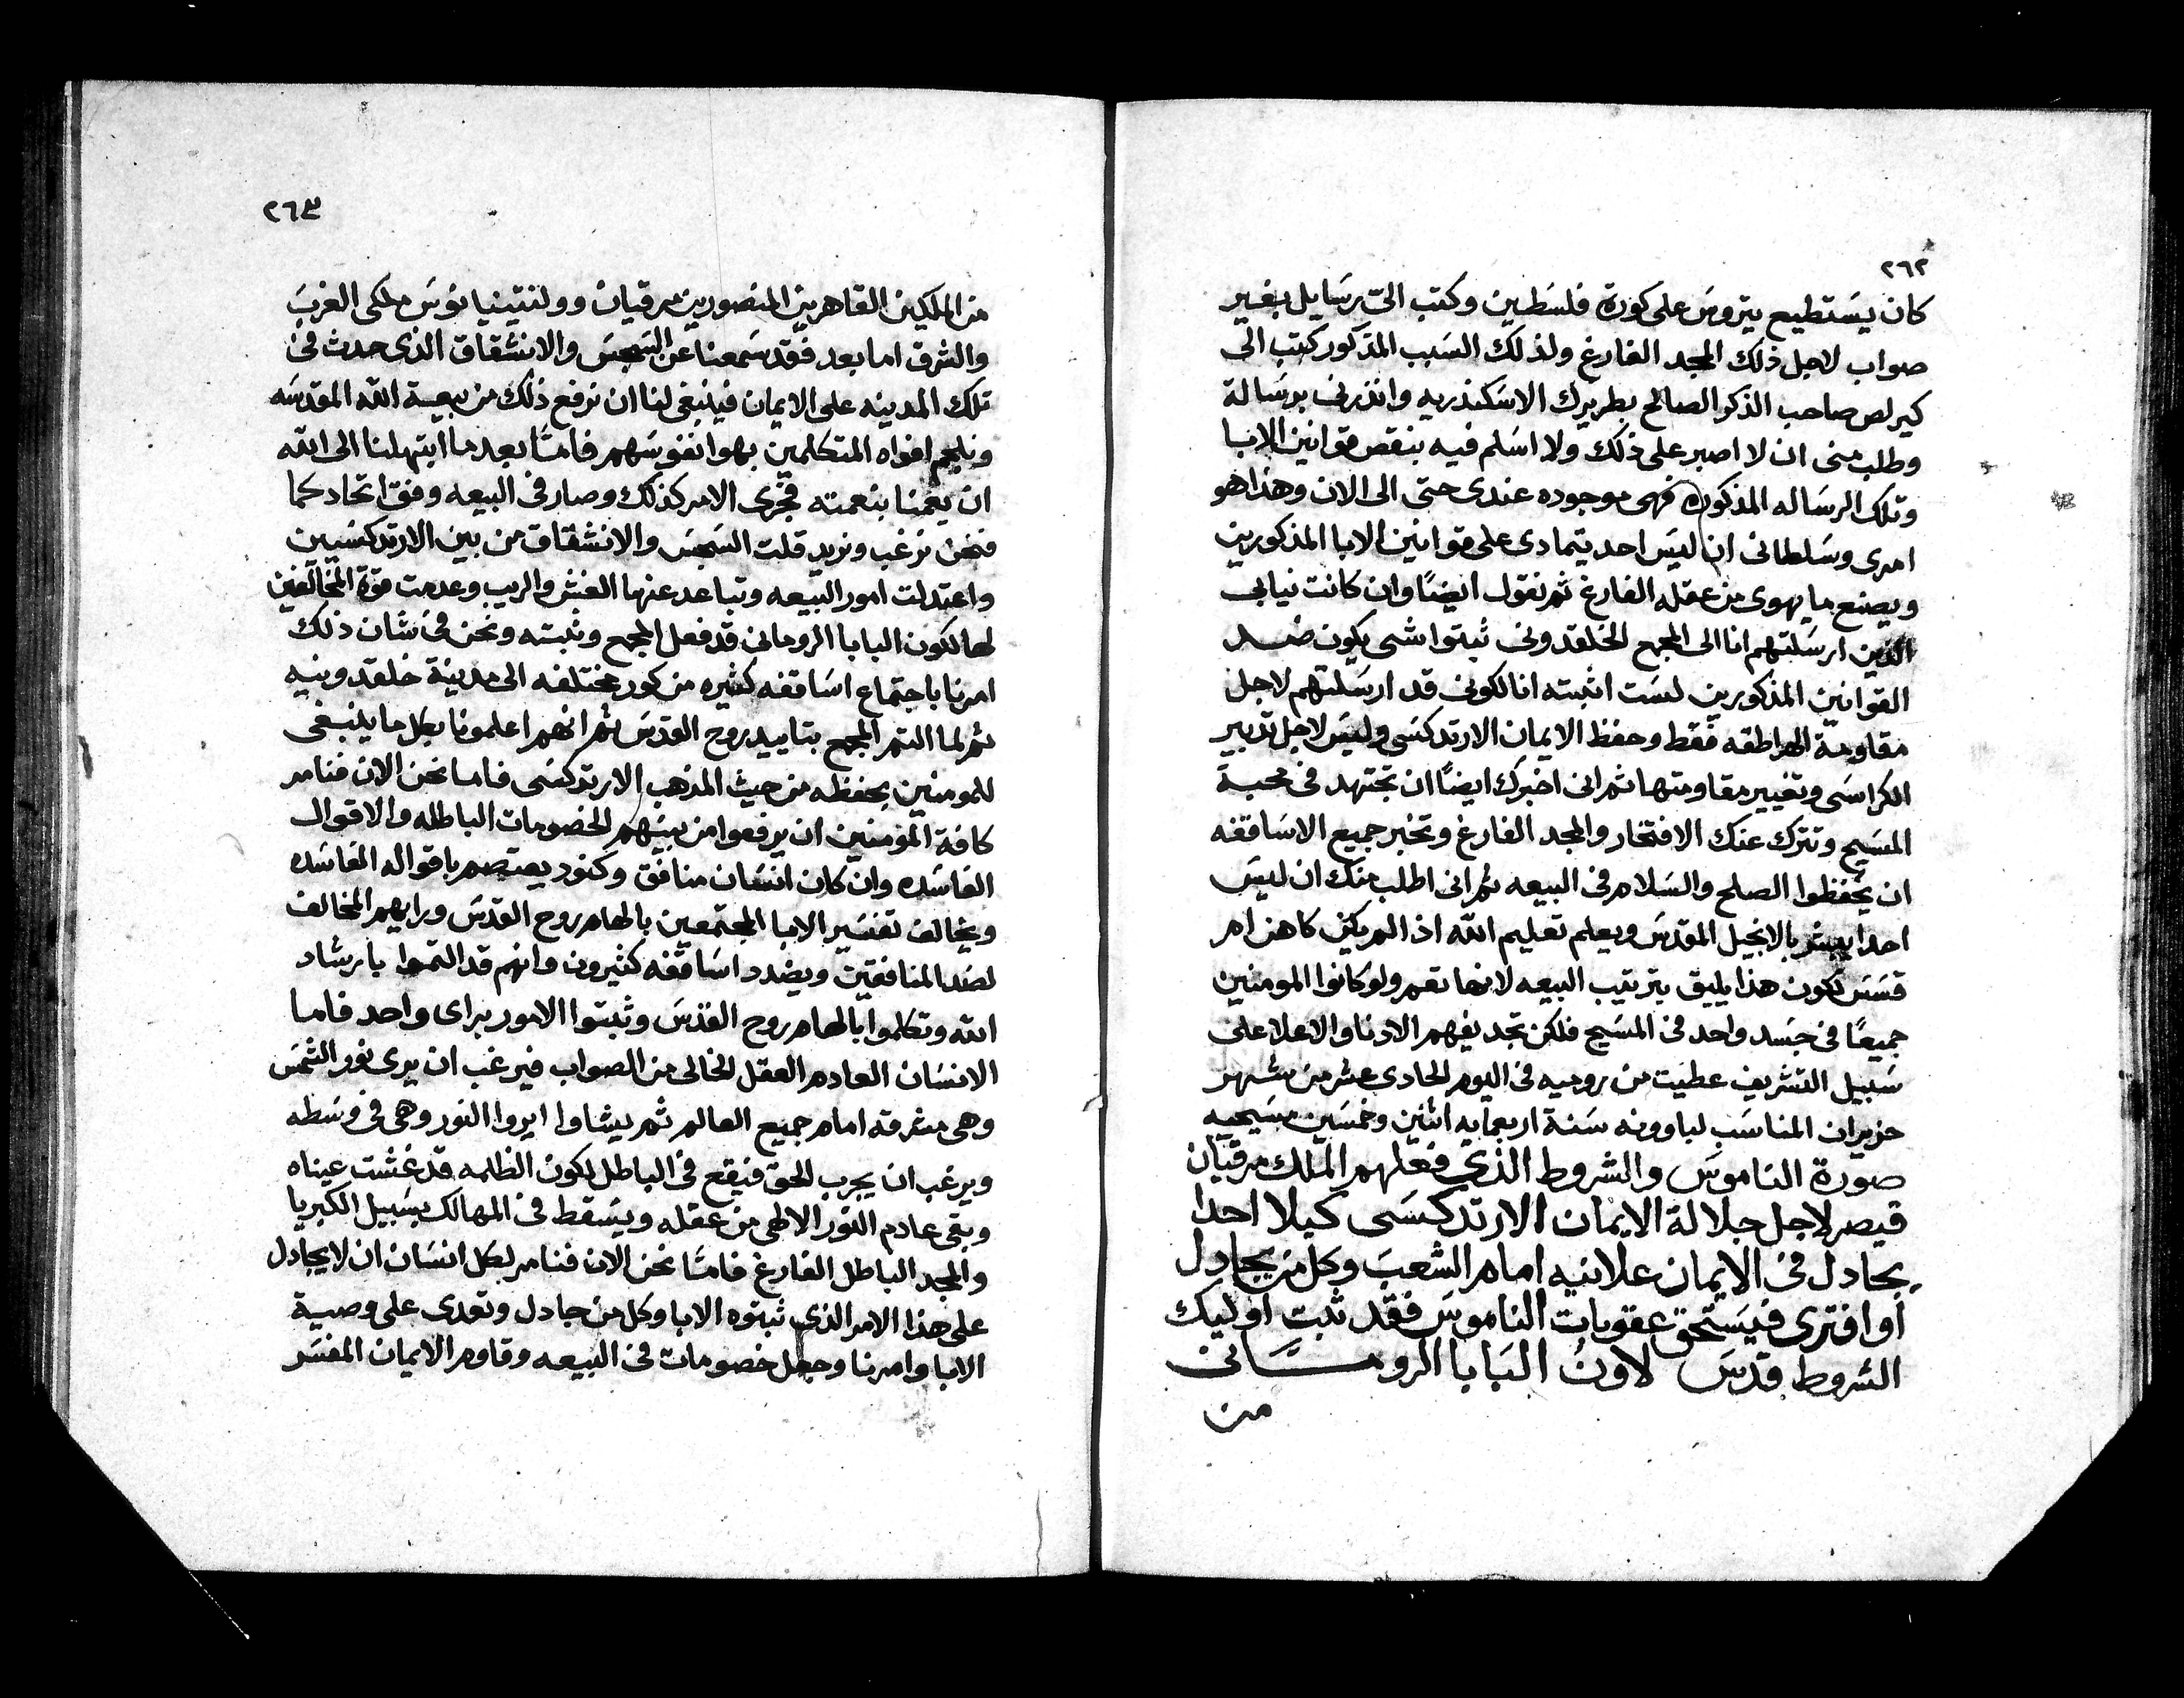 ٢٦٢
كان يستطيع يتروس على كورة فلسطين وكتب الىّ رسايل بغير
صواب لاجل ذلك المجد الفارغ ولذلك السبب المذكور كتب الى
كيرلص صاحب الذكر الصالح بطريرك الاسكندريه وانذرنى برسالة
وطلب منى ان لا اصبر على ذلك ولا اسلم فيه بنقص قوانين الابا
وتلك الرساله المذكوره فهى موجوده عندى حتى الى الان وهذا هو
امرى وسلطانى ان ليس احد يتمادى على قوانين الابا المذكورين
ويصنع ما يهوى من عقله الفارغ ثم نقول ايضًا وان كانت نيابى
الذين ارسلتهم انا الى المجمع الخلقدونى ثبتوا شى يكون ضد
القوانين المذكورين لست اثبته انا لكونى قد ارسلتهم لاجل
مقاومة الهراطقه فقط وحفظ الايمان الارتدكسى وليس لاجل تدبير
الكراسى وتغيير مقاومتها ثم انى اخبرك ايضًا ان تجتهد فى محبة
المسيح وتترك عنك الافتخار والمجد الفارغ وتخبر جميع الاساقفه
ان يحفظوا الصلح والسلام فى البيعه ثم انى اطلب منك ان ليس
احدا يبشر بالانجيل المقدس ويعلم تعليم الله اذا لم يكن كاهن ام
قسس لكون هذا يليق بترتيب البيعه لانها تعم ولو كانوا المومنين
جميعًا فى جسد واحد فى المسيح فلكن تجد يفهم الادنا والاعلا على
سبيل التشريف عطيت من روميه فى اليوم الحادى عشر من شهر
حزيران المناسب لباوونه سنة اربعمايه اثنين وخمسين مسيحيه
صورة الناموس والشروط الذى فعلهم الملك مرقيان
قيصر لاجل جلالة الايمان الارتدكسى كيلا احدا
يجادل فى الايمان علانيه امام الشعب وكل من يجادل
او افترى فيستحق عقوبات الناموس فقد ثبت اوليك
الشروط قدس لاون البابا الرومانى
من
٢٦٣
من الملكين القاهرين المنصورين مرقيان وولنتينيانوس ملكى الغرب
والشرق اما بعد فقد سمعنا عن السجس والانشقاق الذى حدث فى
تلك المدينه على الايمان فينبغى لنا ان نرفع ذلك من بيعة الله المقدسه
ونلجم افواه المتكلمين بهوا نفوسهم فامّا بعد ما ابتهلنا الى الله
ان يعمنا بنعمته فجرى الامر كذلك وصار فى البيعه وفق اتحاد كما
فنحن نرغب ونريد قلت السجس والانشقاق من بين الارتدكسيين
واعتدلت امور البيعه وتباعد عنها الغش والريب وعدمت قوة المخالفين
لها لكون البابا الرومانى قد فعل المجمع وثبته ونحن فى شان ذلك
امرنا باجتماع اساقفه كثيره من كور مختلفه الى مدينة خلقدونيه
ثم لما التم المجمع بتاييد روح القدس ثم انهم اعلمونا بكل ما ينبغى
للمومنين بحفظه من حيث المذهب الارتدكسى فاما نحن الان فنامر
كافة المؤمنين ان يرفعوا من بينهم الخصومات الباطله والاقوال
الفاسده وان كان انسان منافق وكنود يعتصم باقواله الفاسده
ويخالف تفسير الابا المجتمعين بالهام روح القدس ورايهم المخالف
لضد المنافقين ويضدد اساقفه كثيرون وانهم قد التموا بارشاد
الله وتكلموا بالهام روح القدس وثبتوا الامور براى واحد فاما
الانسان العادم العقل الخالى من الصواب فيرغب ان يرى نور الشمس
وهى مشرقه امام جميع العالم ثم يشاوا ايروا النور وهى فى وسطه
ويرغب ان يجرب الحق فيقع فى الباطل لكون الظلمه قد غشت عيناه
وبقى عادم النور الالهى من عقله ويسقط فى المهالك بسبيل الكبريا
والمجد الباطل الفارغ فامّا نحن الان فنامر لكل انسان ان لا يجادل
على هذا الامر الذى ثبتوه الابا وكل من جادل وتعدى على وصية
الابا وامرنا وجعل خصومات فى البيعه وقاوم الايمان المفسر